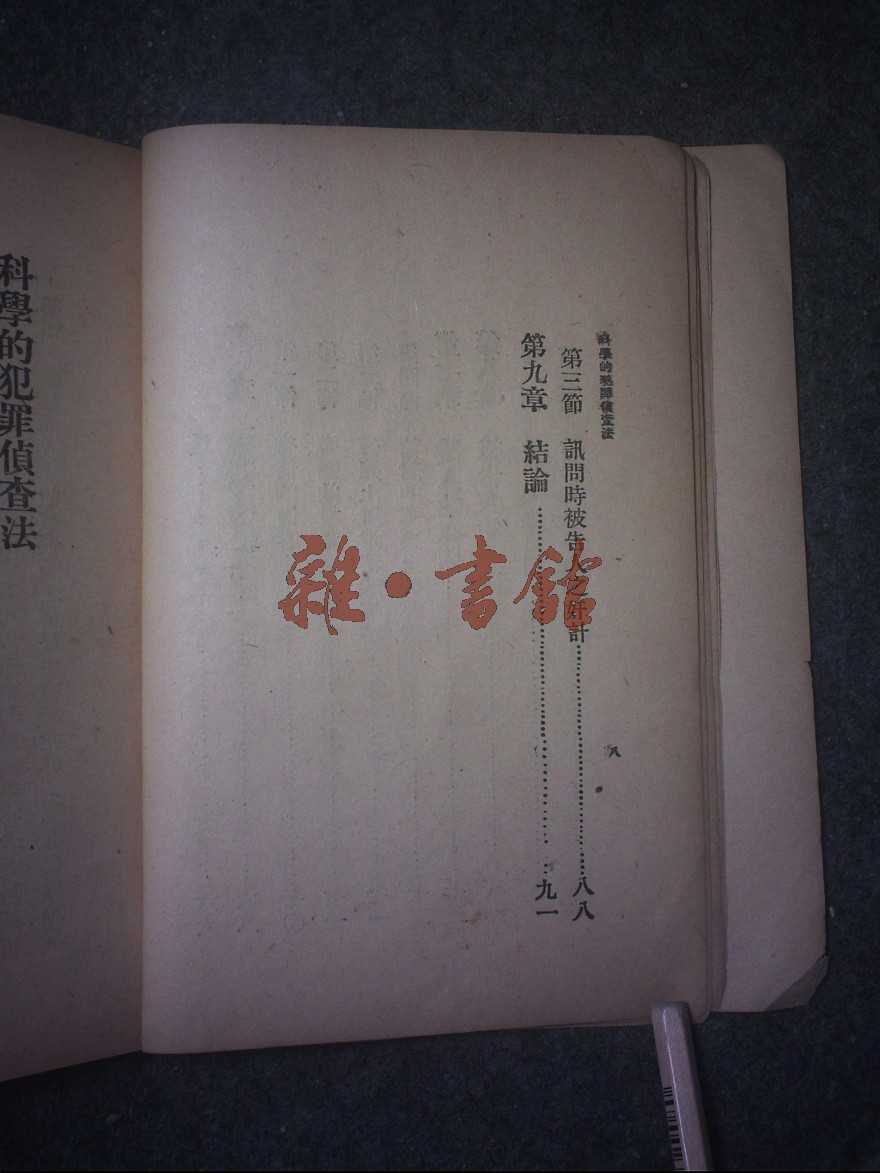 科學的犯罪偵查法
八
第三節　訊問時被告人之奸計……八八
第九章　結論……九一
科學的犯罪偵查法
雜·書館